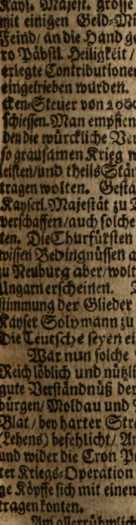 Kays. Majest. grosse
mit einigen Geld-
Feind/ an die Hand g
ro Päbstl. Heiligkeit/
erlegte Contributione
eingetrieben wurden.
cken-Steuer von 2000
schiessen. Man empfien
den die würckliche
so grausamen Krieg
leisten/ und theils Stän
tragen wolten. Gesta
Kayserl. Majestät zu
verschaffen/ auch solche
ten. Die Churfürsten
wissen Bedingnüssen
zu Neuburg aber/ wolt
Ungarn erscheinen.
stimmung der Glieder
Kayser Solymann zu
Die Teutsche seyen ei
War nun solche
Reich löblich und nützli
gute Verständnüß der
bürgen/ Moldau und
Blat/ bey harter Stre
Lehens) befehlicht/
und wider die Cron
ter Kriegs-Operation
ge Köpffe sich mit einem
tragen konten.